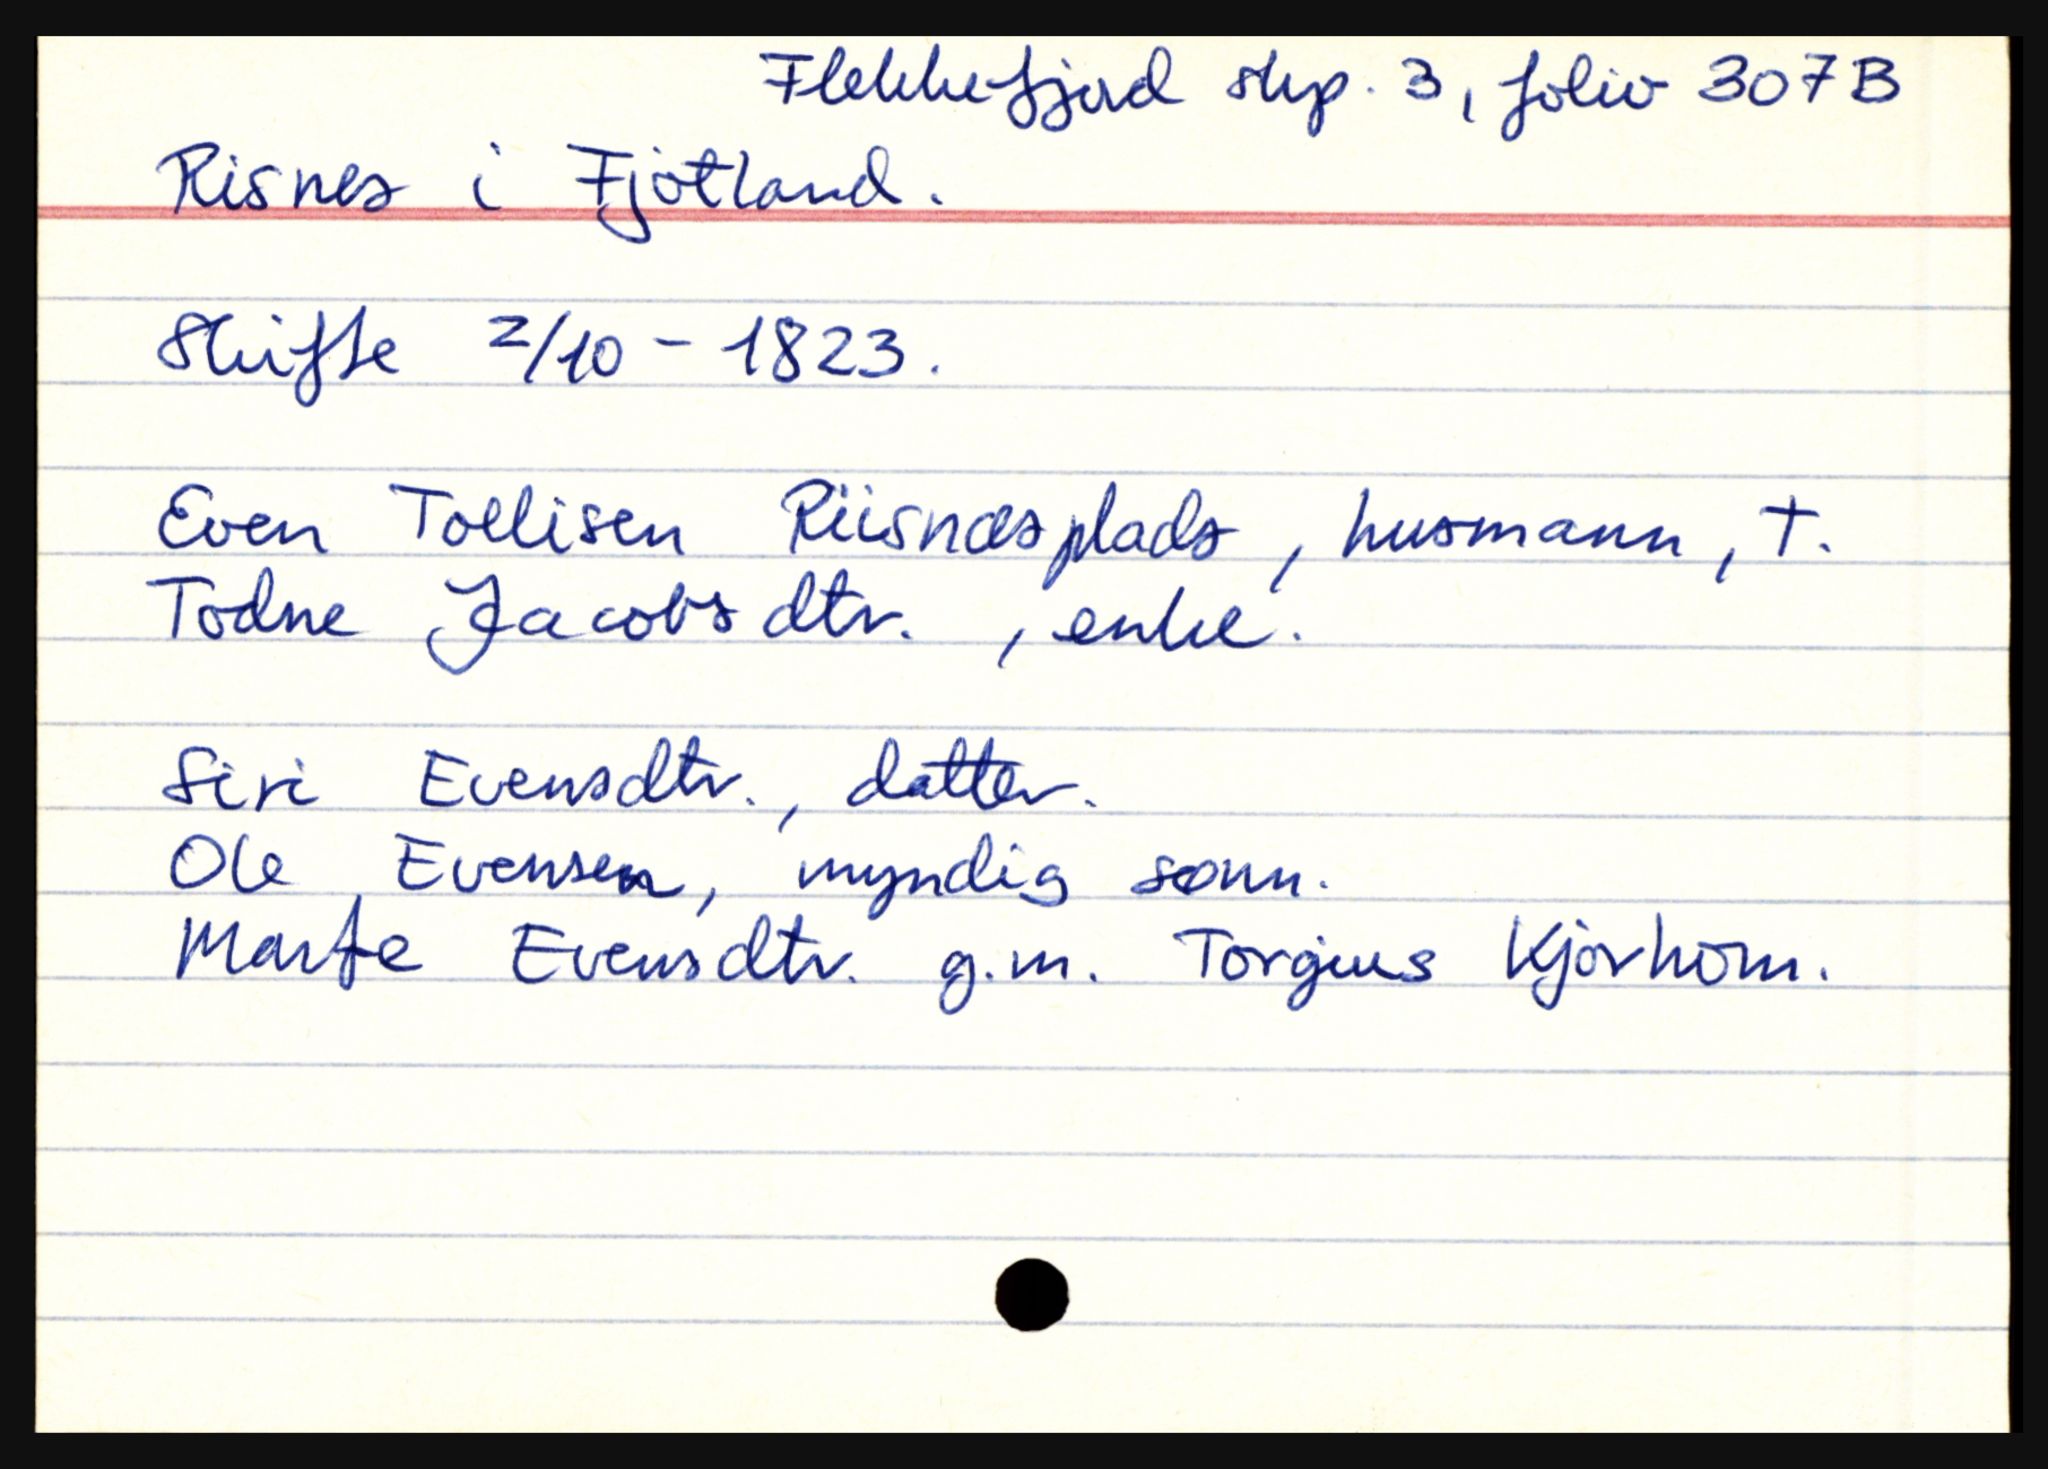 Flekkefjord skp. 3, folio 307B
Risnes i Fjotland.
Skifte 2/10 - 1823.
Even Tollisen Riisnæsplads, husmann, †.
Todne Jacobsdtr. , enke.
Siri Evensdtr., datter.
Ole Evensen, myndig sønn.
Marte Evensdtr. g.m. Torgius Kjørhom.